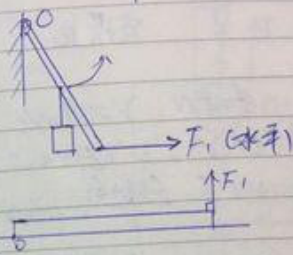 O
F₁ (水平)
F₁
O